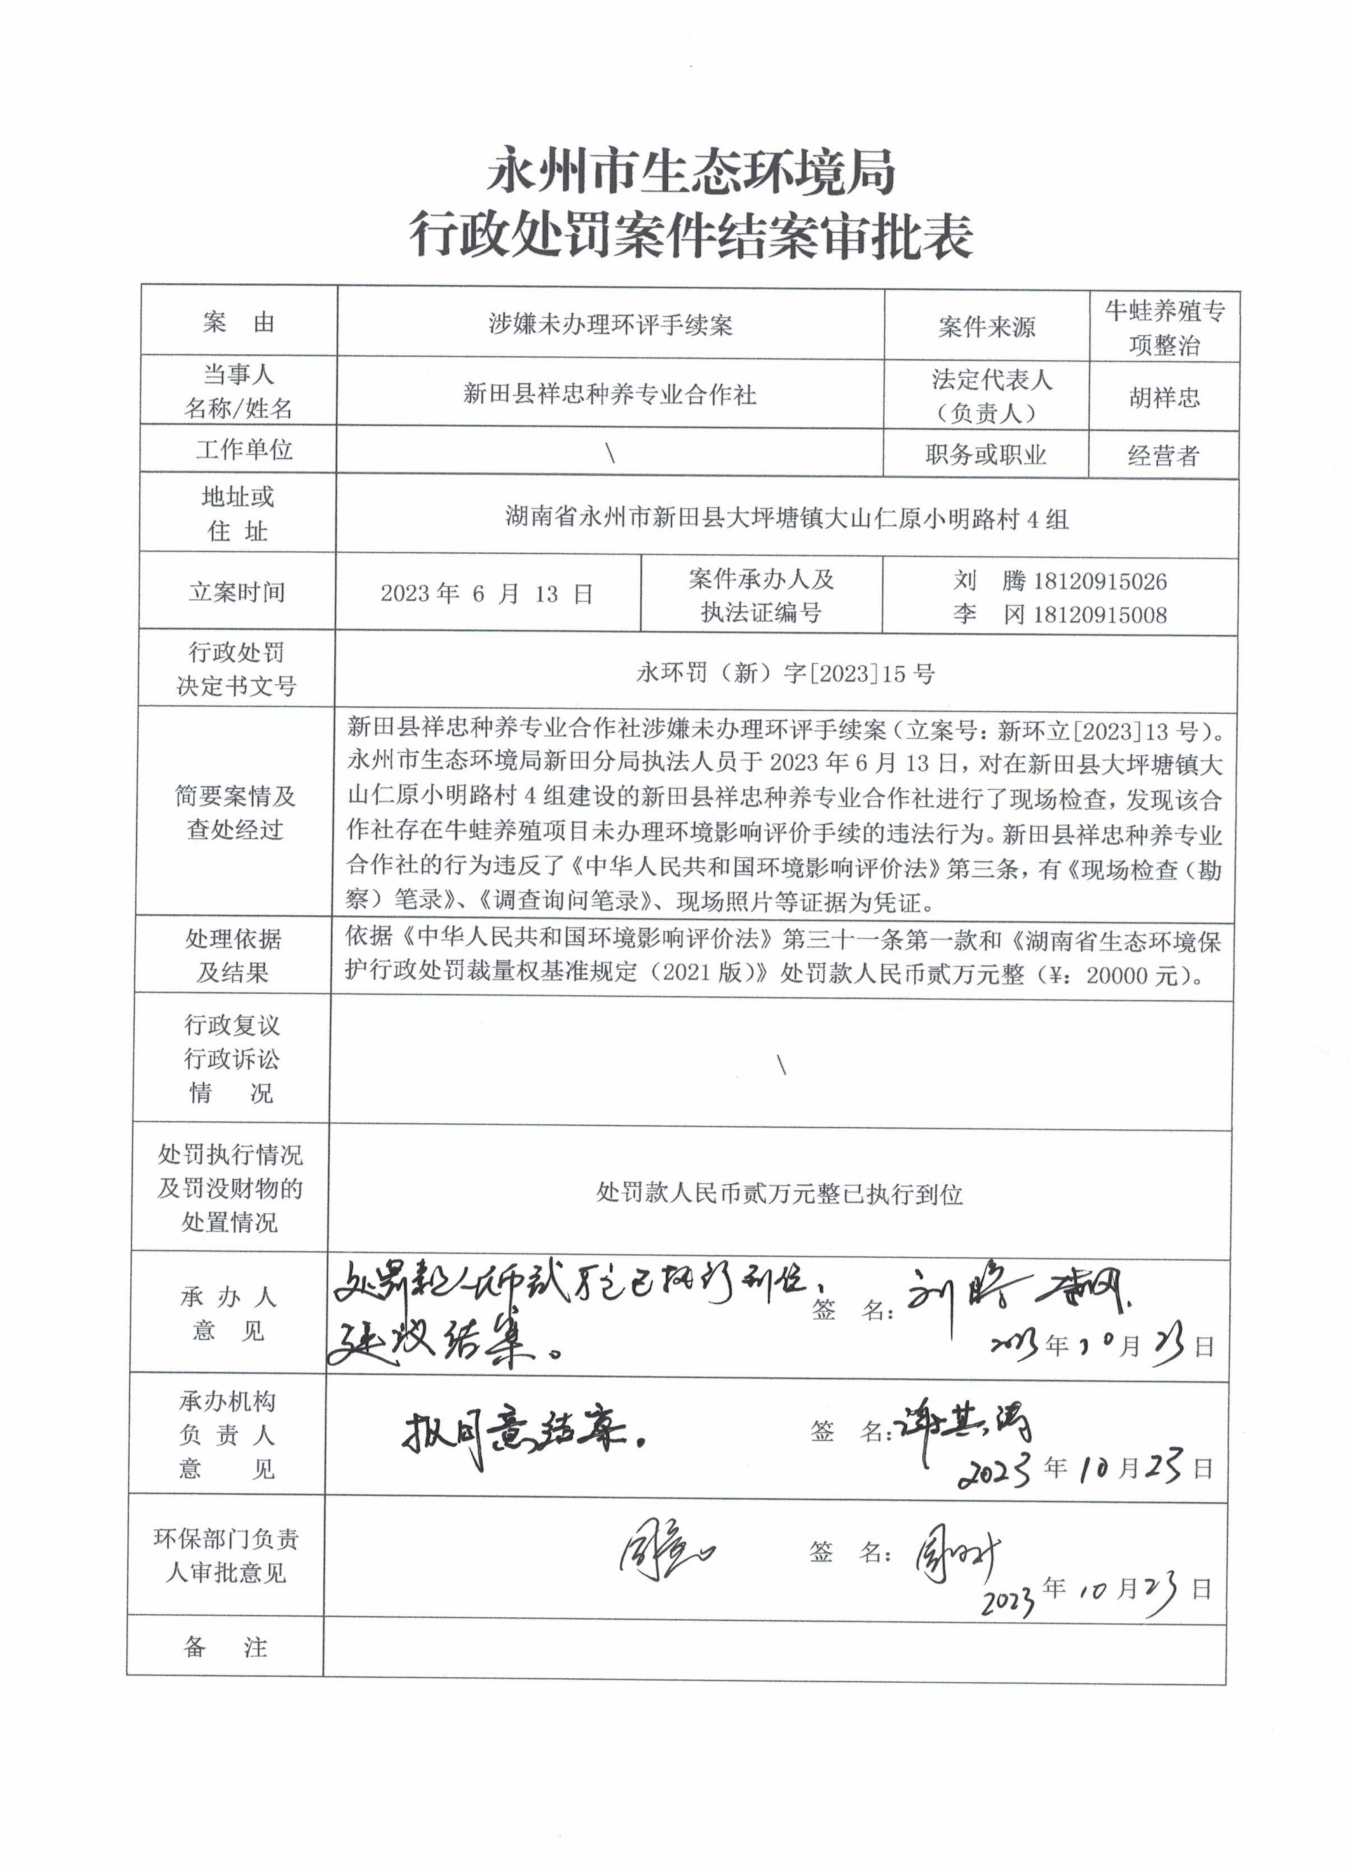 永州市生态环境局
行政处罚案件结案审批表
案 由
涉嫌未办理环评手续案
案件来源
牛蛙养殖专
项整治
当事人
名称/姓名
新田县祥忠种养专业合作社
法定代表人
（负责人）
胡祥忠
工作单位
\
职务或职业
经营者
地址或
住 址
湖南省永州市新田县大坪塘镇大山仁原小明路村 4 组
立案时间
2023 年 6 月 13 日
案件承办人及
执法证编号
刘 腾 18120915026
李 冈 18120915008
行政处罚
决定书文号
永环罚（新）字[2023]15 号
简要案情及
查处经过
新田县祥忠种养专业合作社涉嫌未办理环评手续案（立案号：新环立[2023]13 号）。
永州市生态环境局新田分局执法人员于 2023 年 6 月 13 日，对在新田县大坪塘镇大
山仁原小明路村 4 组建设的新田县祥忠种养专业合作社进行了现场检查，发现该合
作社存在牛蛙养殖项目未办理环境影响评价手续的违法行为。新田县祥忠种养专业
合作社的行为违反了《中华人民共和国环境影响评价法》第三条，有《现场检查（勘
察）笔录》、《调查询问笔录》、现场照片等证据为凭证。
处理依据
及结果
依据《中华人民共和国环境影响评价法》第三十一条第一款和《湖南省生态环境保
护行政处罚裁量权基准规定（2021 版）》处罚款人民币贰万元整（¥：20000 元）。
行政复议
行政诉讼
情 况
\
处罚执行情况
及罚没财物的
处置情况
处罚款人民币贰万元整已执行到位
承 办 人
意 见
处罚款人民币贰万元已执行到位，
建议结案。
签 名：
刘腾 李冈
2023 年 10 月 23 日
承办机构
负 责 人
意 见
拟同意结案。
签 名：
2023 年 10 月 23 日
环保部门负责
人审批意见
同意
签 名：
2023 年 10 月 23 日
备 注